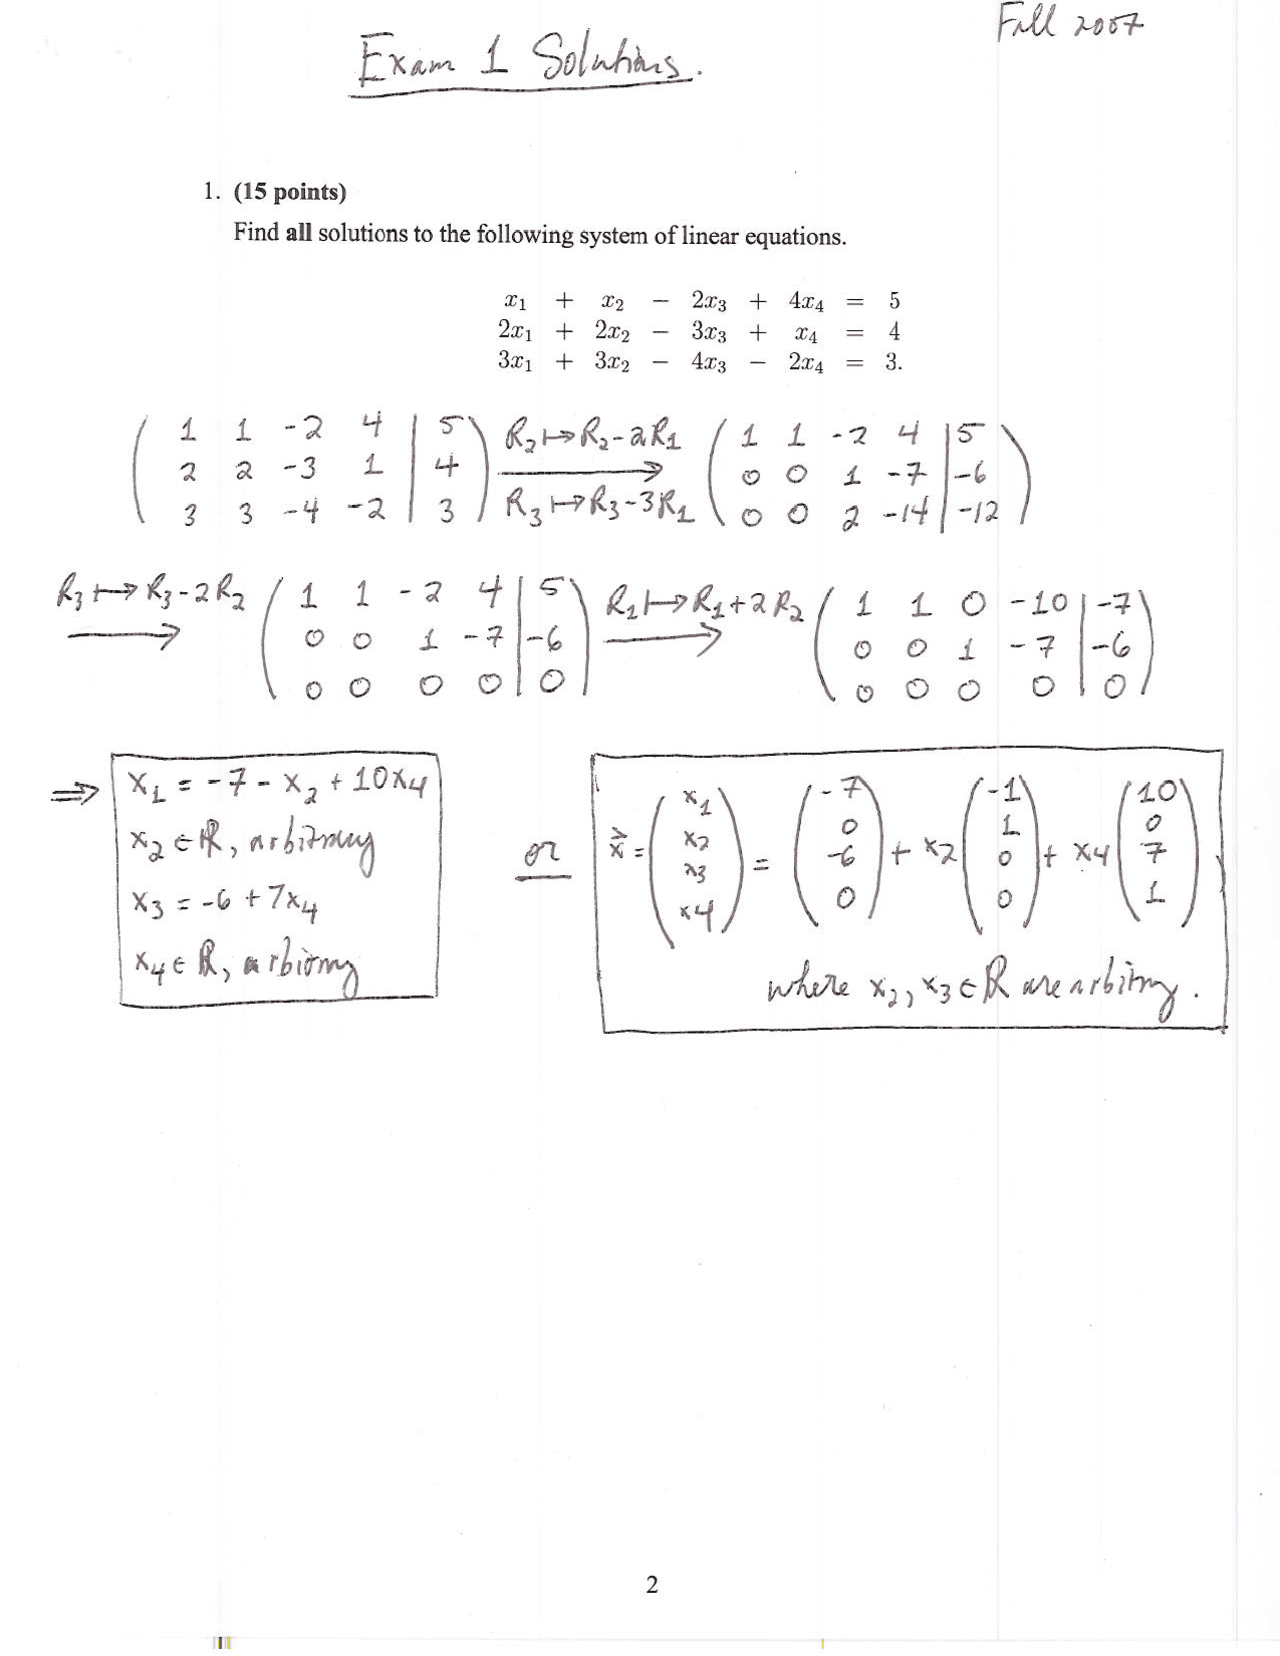 Fall 2007
Exam 1 Solutions.
1. (15 points)
Find all solutions to the following system of linear equations.
x₁ + x₂ − 2x₃ + 4x₄ = 5
2x₁ + 2x₂ − 3x₃ + x₄ = 4
3x₁ + 3x₂ − 4x₃ − 2x₄ = 3.
( 1 1 -2 4 | 5 ) R₂ ↦ R₂-2R₁ ( 1 1 -2 4 | 5 )
( 2 2 -3 1 | 4 ) → ( 0 0 1 -7 | -6 )
( 3 3 -4 -2 | 3 ) R₃ ↦ R₃-3R₁ ( 0 0 2 -14 | -12 )
R₃ ↦ R₃-2R₂ ( 1 1 -2 4 | 5 ) R₁ ↦ R₁+2R₂ ( 1 1 0 -10 | -7 )
→ ( 0 0 1 -7 | -6 ) → ( 0 0 1 -7 | -6 )
( 0 0 0 0 | 0 ) ( 0 0 0 0 | 0 )
⇒ x₁ = -7 - x₂ + 10x₄
x₂ ∈ ℝ, arbitrary
x₃ = -6 + 7x₄
x₄ ∈ ℝ, arbitrary
or
x⃗ = ( x₁ x₂ x₃ x₄ ) = ( -7 0 -6 0 ) + x₂ ( -1 1 0 0 ) + x₄ ( 10 0 7 1 ),
where x₂, x₃ ∈ ℝ are arbitrary.
2